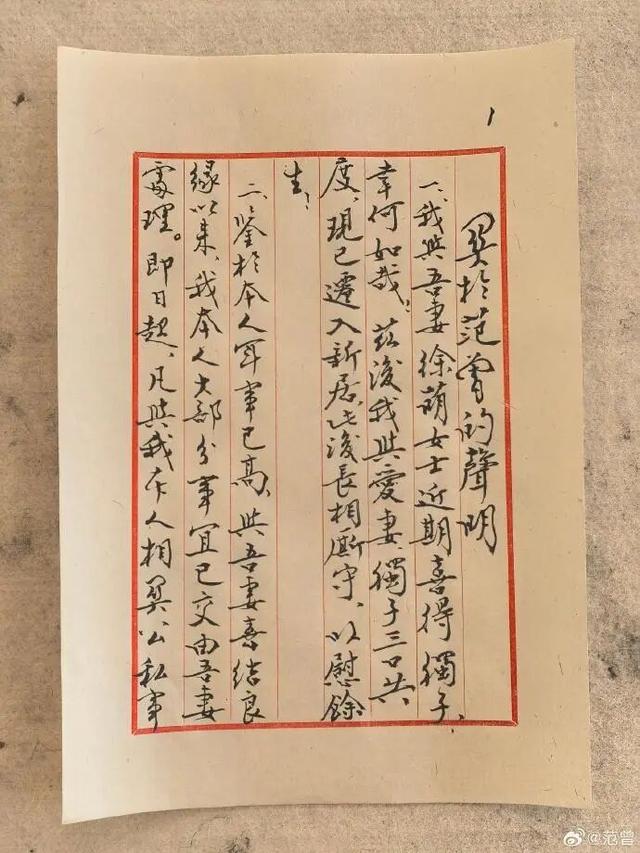 1
關於范曾的聲明
一、我與吾妻徐萌女士近期喜得獨子、
幸何如哉！茲後我與愛妻、獨子三口共
度，現已遷入新居，此後長相厮守、以慰餘
生！
二、鑒於本人年事已高、與吾妻喜結良
緣以來、我本人大部分事宜已交由吾妻
處理。即日起、凡與我本人相關公私事
@范曾